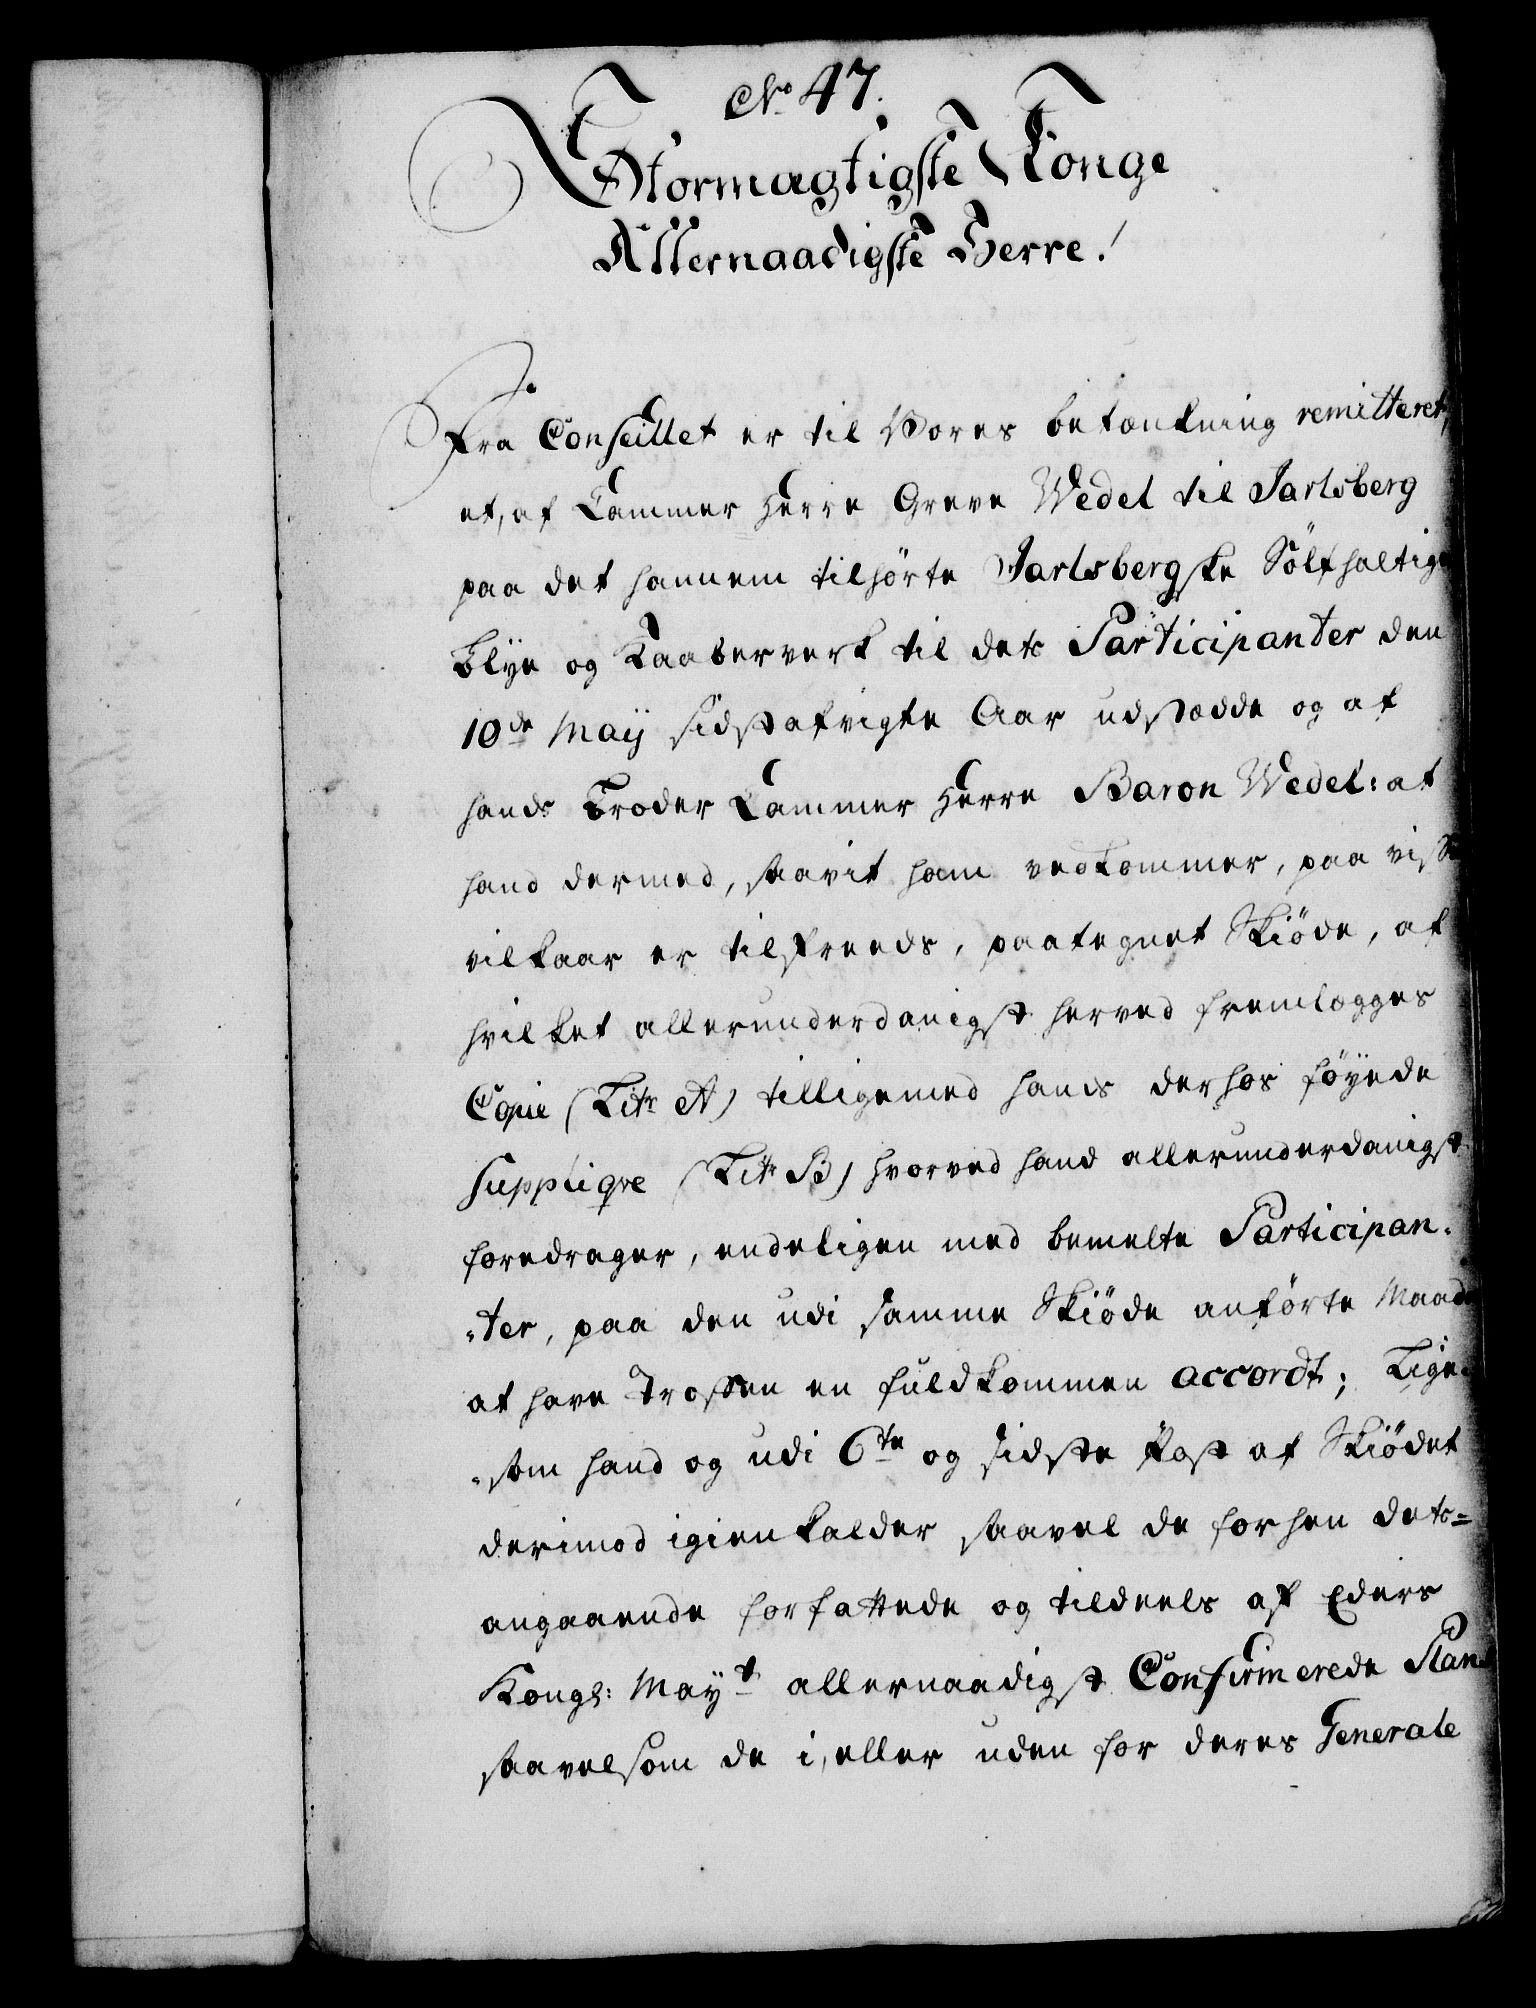 No 47.
Stormægtigste Konge
Allernaadigste Herre!
Fra Conseillet er til Vores betænkning remitteret,
et, af Cammer Herre Greve Wedel til Jarlsberg
paa det hannem tilhørte Jarlsbergske Sölfholtige
Blye og Kaaberverk til dets Participanter den
10de Maij sidstafvigte Aar udstædde og af
hands Broder Cammer Herre Baron Wedel: at
hand dermed, saavit ham vedkommer, paa visse
vilkaar er tilfreeds, paategnet Skiöde, af
hvilket allerunderdanigst herved fremlægges
Copie (Litr A) tilligemed hans derhos föyede
Suppliqve (Litr B) hvorved hand allerunderdanigst
foredrager, endeligen med bemelte Participan-
-ter, paa den udi samme Skiöde anförte Maade
at have troffen en fuldkommen accordt; Lige-
-som hand og udi 6te og sidste Post af Skiödet
derimod igienkalder saavel de forhen dets=
angaaende forfattede og tildeels af Eders
Kongl: Mayt allernaadigst Confirmerede Plan
saavelsom de i, eller uden for deres Generale